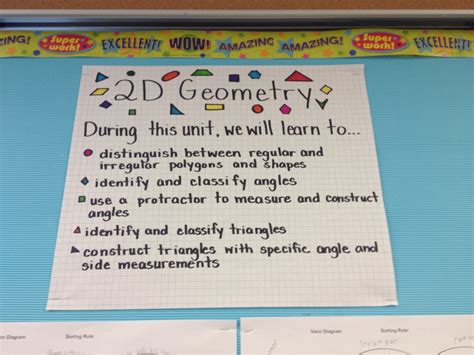 ZING! Super work! EXCELLENT! WOW! AMAZING! AMAZING! Super work! EXCELLENT!
2D Geometry
During this unit, we will learn to...
distinguish between regular and
irregular polygons and shapes
identify and classify angles
use a protractor to measure and construct
angles
identify and classify triangles
construct triangles with specific angle and
side measurements
Venn Diagram Sorting Rule: Venn Diagram Sorting Rule: